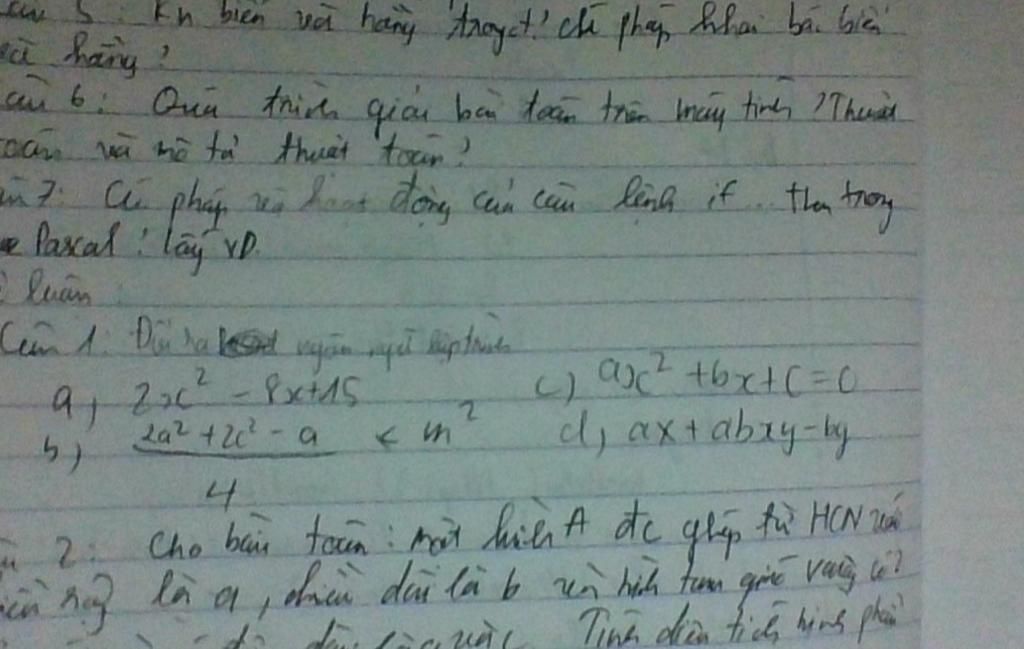 5. Kn biến và hằng trong ct? cú pháp khai báo biến
và hằng?
câu 6: Quá trình giải bài toán trên máy tính? Thuật
toán và mô tả thuật toán?
7: Cú pháp và hoạt động của câu lệnh if .. then trong
Pascal? lấy VD.
luận
Câu 1: Đưa ra ngôn ngữ lập trình
a, 2x² - 8x+15 c) ax² +bx+c=0
b) (2a² +2c² - a)/4 < m² d, ax+abxy-by
2: Cho bài toán: một hình A đc ghép từ HCN với
rộng là a, chiều dài là b và hình tam giác vuông có
Tính diện tích hình